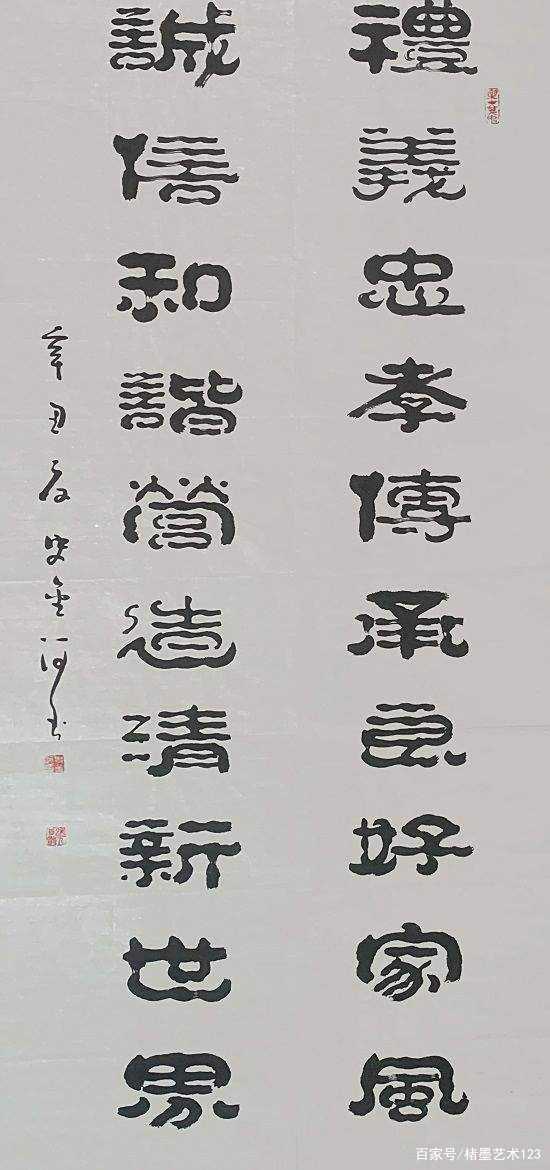 禮義忠孝傳承良好家風
誠信和諧營造清新世界
辛丑夏史金河书
百家号/楮墨艺术123